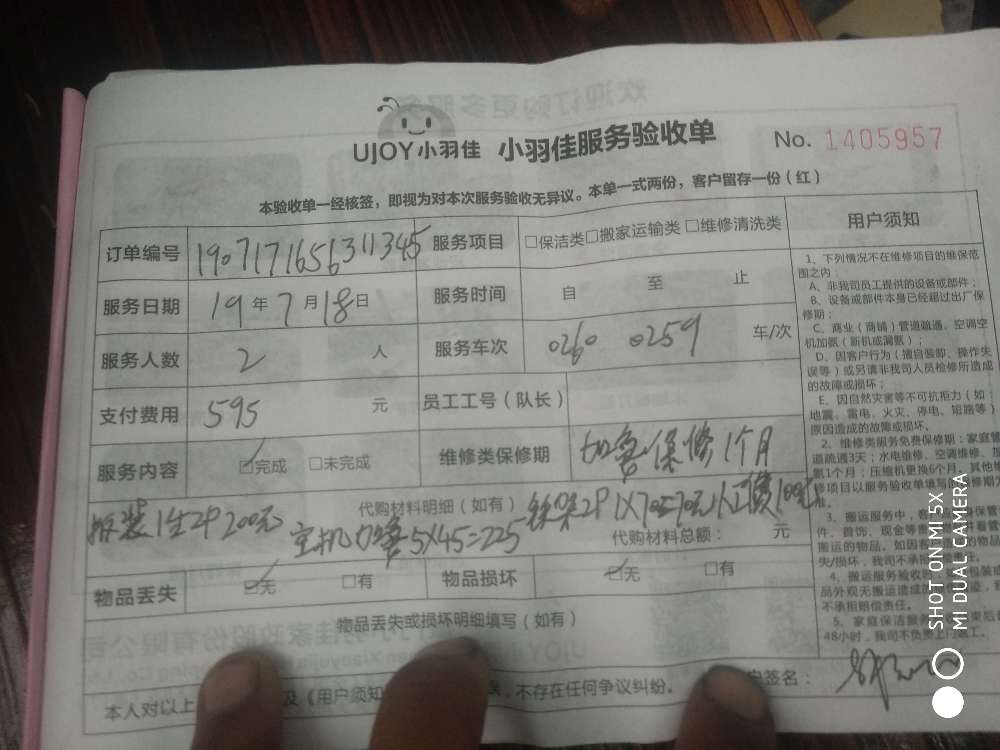 UJOY小羽佳 小羽佳服务验收单 No. 1405957
本验收单一经核签，即视为对本次服务验收无异议。本单一式两份，客户留存一份（红）
订单编号 190717165631 1345 服务项目 □保洁类□搬家运输类 □维修清洗类
服务日期 19 年 7 月 18 日 服务时间 自 至 止
服务人数 2 人 服务车次 0260 0259 车/次
支付费用 595 元 员工工号（队长）
服务内容 ☑完成 □未完成 维修类保修期 加雪保修1个月
代购材料明细（如有）
拆装1生2P 200元 空机加雪5X45=225 2P 1X70=70元 100元
代购材料总额： 元
物品丢失 ☑无 □有 物品损坏 ☑无 □有
物品丢失或损坏明细填写（如有）
本人对以上 及《用户须知 ，不存在任何争议纠纷。 户签名：
用户须知
1、下列情况不在维修项目的维保范
围之内：
A、非我司员工提供的设备或部件；
B、设备或部件本身已经超过出厂保
修期；
C、商业（商铺）管道疏通、空调空
机加氨（新机或漏氨）；
D、因客户行为（擅自装卸、操作失
误等）或另请非我司人员检修所造成
的故障或损坏；
E、因自然灾害等不可抗拒力（如：
地震、雷电、火灾、停电、短路等）
原因造成的故障或损坏。
2、维修类服务免费保修期：家庭管
道疏通3天；水电维修、空调维修、加
氨1个月；压缩机更换6个月。其他维
修项目以服务验收单填写的保修期为
准。
3、搬运服务中，
件、首饰、现金等
搬运的物品。如因客户
失/损坏，我司不承担
4、搬运服务验收时，
品外观无搬运造成
不承担赔偿责任。
5、家庭保洁服务
48小时，我司不负责上门返工。
SHOT ON MI 5X
MI DUAL CAMERA